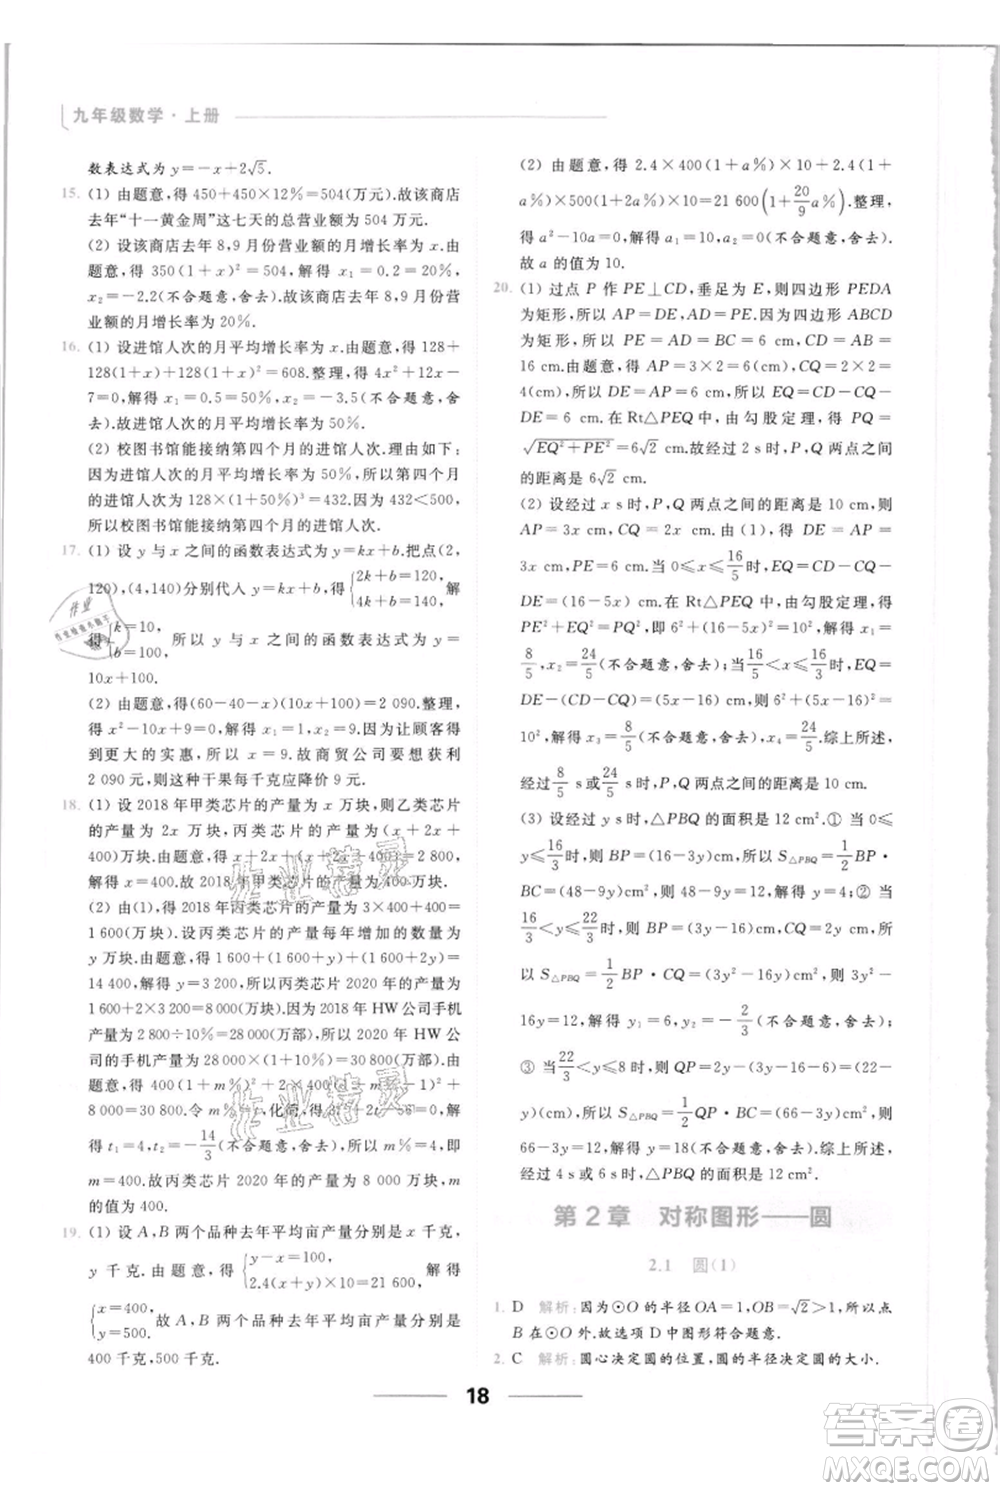 九年级数学·上册
数表达式为 y=-x+2√5.
15. (1) 由题意,得 450+450×12%=504(万元).故该商店
去年“十一黄金周”这七天的总营业额为 504 万元.
(2) 设该商店去年 8,9 月份营业额的月增长率为 x.由
题意,得 350(1+x)²=504,解得 x₁=0.2=20%,
x₂=-2.2(不合题意,舍去).故该商店去年 8,9 月份营
业额的月增长率为 20%.
16. (1) 设进馆人次的月平均增长率为 x.由题意,得 128+
128(1+x)+128(1+x)²=608.整理,得 4x²+12x-
7=0,解得 x₁=0.5=50%,x₂=-3.5(不合题意,舍
去).故进馆人次的月平均增长率为 50%.
(2) 校图书馆能接纳第四个月的进馆人次.理由如下:
因为进馆人次的月平均增长率为 50%,所以第四个月
的进馆人次为 128×(1+50%)³=432.因为 432<500,
所以校图书馆能接纳第四个月的进馆人次.
17. (1) 设 y 与 x 之间的函数表达式为 y=kx+b.把点(2,
120),(4,140)分别代入 y=kx+b,得 {2k+b=120, 4k+b=140, 解
得 {k=10, b=100, 所以 y 与 x 之间的函数表达式为 y=
10x+100.
(2) 由题意,得(60-40-x)(10x+100)=2 090.整理,
得 x²-10x+9=0,解得 x₁=1,x₂=9.因为让顾客得
到更大的实惠,所以 x=9.故商贸公司要想获利
2 090 元,则这种干果每千克应降价 9 元.
18. (1) 设 2018 年甲类芯片的产量为 x 万块,则乙类芯片
的产量为 2x 万块,丙类芯片的产量为(x+2x+
400)万块.由题意,得 x+2x+(x+2x)+400=2 800,
解得 x=400.故 2018 年甲类芯片的产量为 400 万块.
(2) 由(1),得 2018 年丙类芯片的产量为 3×400+400=
1 600(万块).设丙类芯片的产量每年增加的数量为
y 万块,则 1 600+1 600+y+1 600+2y=14 400,解
得 y=3 200,所以丙类芯片 2020 年的产量为
1 600+2×3 200=8 000(万块).因为 2018 年 HW 公司手机
产量为 2 800÷10%=28 000(万部),所以 2020 年 HW 公
司的手机产量为 28 000×(1+10%)(万部).由题
意,得 400(1+m%)²+2×400(1+m%)²+
8 000=28 000×(1+10%).令 m%=t,化简,得 3t²+
2t-56=0,解得 t₁=4,t₂=-14/3(不合题意,舍去),所以 m%=4,即
m=400.故丙类芯片 2020 年的产量为 8 000 万块,m
的值为 400.
19. (1) 设 A,B 两个品种去年平均亩产量分别为 x 千克,
y 千克.由题意,得 {y-x=100, 2.4(x+y)×10=21 600, 解得
{x=400, y=500, 故 A,B 两个品种去年平均亩产量分别是
400 千克,500 千克.
(2) 由题意,得 2.4×400(1+a%)×10+2.4(1+
a%)×500(1+2a%)×10=21 600(1+20/9 a%).整理,
得 a²-10a=0,解得 a₁=10,a₂=0(不合题意,舍去).
故 a 的值为 10.
20. (1) 过点 P 作 PE⊥CD,垂足为 E,则四边形 PEDA
为矩形,所以 AP=DE,AD=PE.因为四边形 ABCD
为矩形,所以 AD=BC=6 cm,CD=AB=
16 cm.由题意,得 AP=3×2=6(cm),CQ=2×2=
4(cm),所以 DE=AP=6 cm,所以 EQ=CD-CQ-
DE=6 cm.在 Rt△PEQ 中,由勾股定理,得 PQ=
√EQ²+PE²=6√2 cm.故经过 2 s 时,P,Q 两点之间的距
离是 6√2 cm.
(2) 设经过 x s 时,P,Q 两点之间的距离是 10 cm,则
AP=3x cm,CQ=2x cm.由(1),得 DE=AP=
3x cm,PE=6 cm.当 0≤x≤16/5 时,EQ=CD-CQ-
DE=(16-5x)cm.在 Rt△PEQ 中,由勾股定理,得
PE²+EQ²=PQ²,所以 6²+(16-5x)²=10²,解得 x₁=
8/5,x₂=24/5(不合题意,舍去);当 16/5<x≤16/3 时,EQ=
DE-(CD-CQ)=(5x-16)cm,则 6²+(5x-16)²=
10²,解得 x₃=8/5(不合题意,舍去),x₄=24/5.综上所述,
经过 8/5 s 或 24/5 s 时,P,Q 两点之间的距离是 10 cm.
(3) 设经过 y s 时,△PBQ 的面积是 12 cm².① 当 0≤
y≤16/3 时,则 BP=(16-3y)cm,所以 S△PBQ=1/2 BP·
BC=(48-9y)cm²,所以 48-9y=12,解得 y=4;② 当
16/3<y≤22/3 时,则 BP=(3y-16)cm,QC=2y cm,所
以 S△PBQ=1/2 BP·CQ=(3y²-16y)cm²,所以 3y²-
16y=12,解得 y₁=6,y₂=-2/3(不合题意,舍去);
③ 当 22/3<y≤8 时,则 QP=CQ-CP=2y-(22-
y)(cm),所以 S△PBQ=1/2 QP·BC=(66-3y)(cm²),
所以 66-3y=12,解得 y=18(不合题意,舍去).综上所述,
经过 4 s 或 6 s 时,△PBQ 的面积是 12 cm².
第 2 章 对称图形——圆
2.1 圆(1)
1. D 解析:因为⊙O 的半径 OA=1,OB=√2>1,所以点
B 在⊙O 外.故选项 D 中图形符合题意.
2. C 解析:圆心决定圆的位置,圆的半径决定圆的大小.
18
作业精灵
作业精灵
答案圈
MXQE.COM